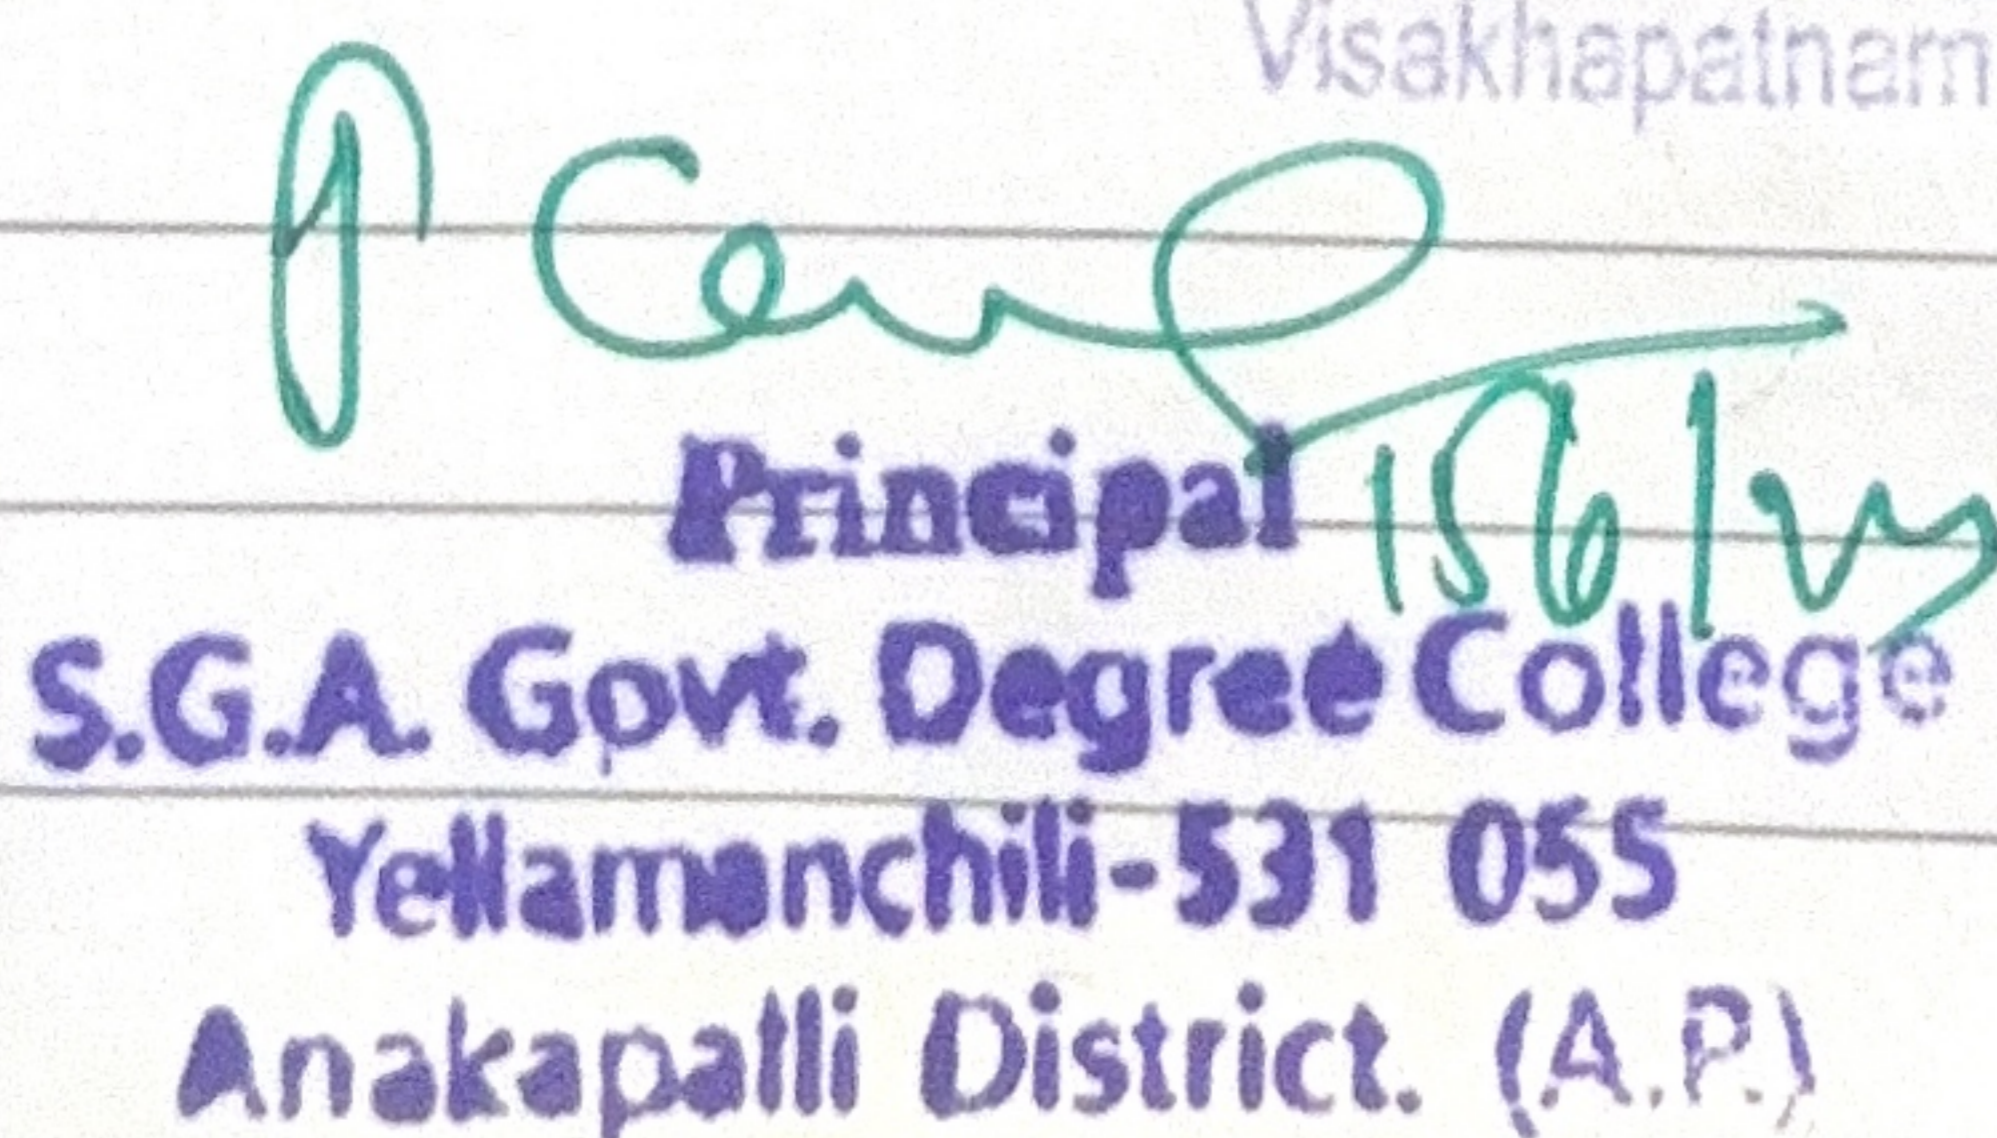 Visakhapatnam
Principal
S.G.A. Govt. Degree College
Yellamanchili-531 055
Anakapalli District. (A.P.)